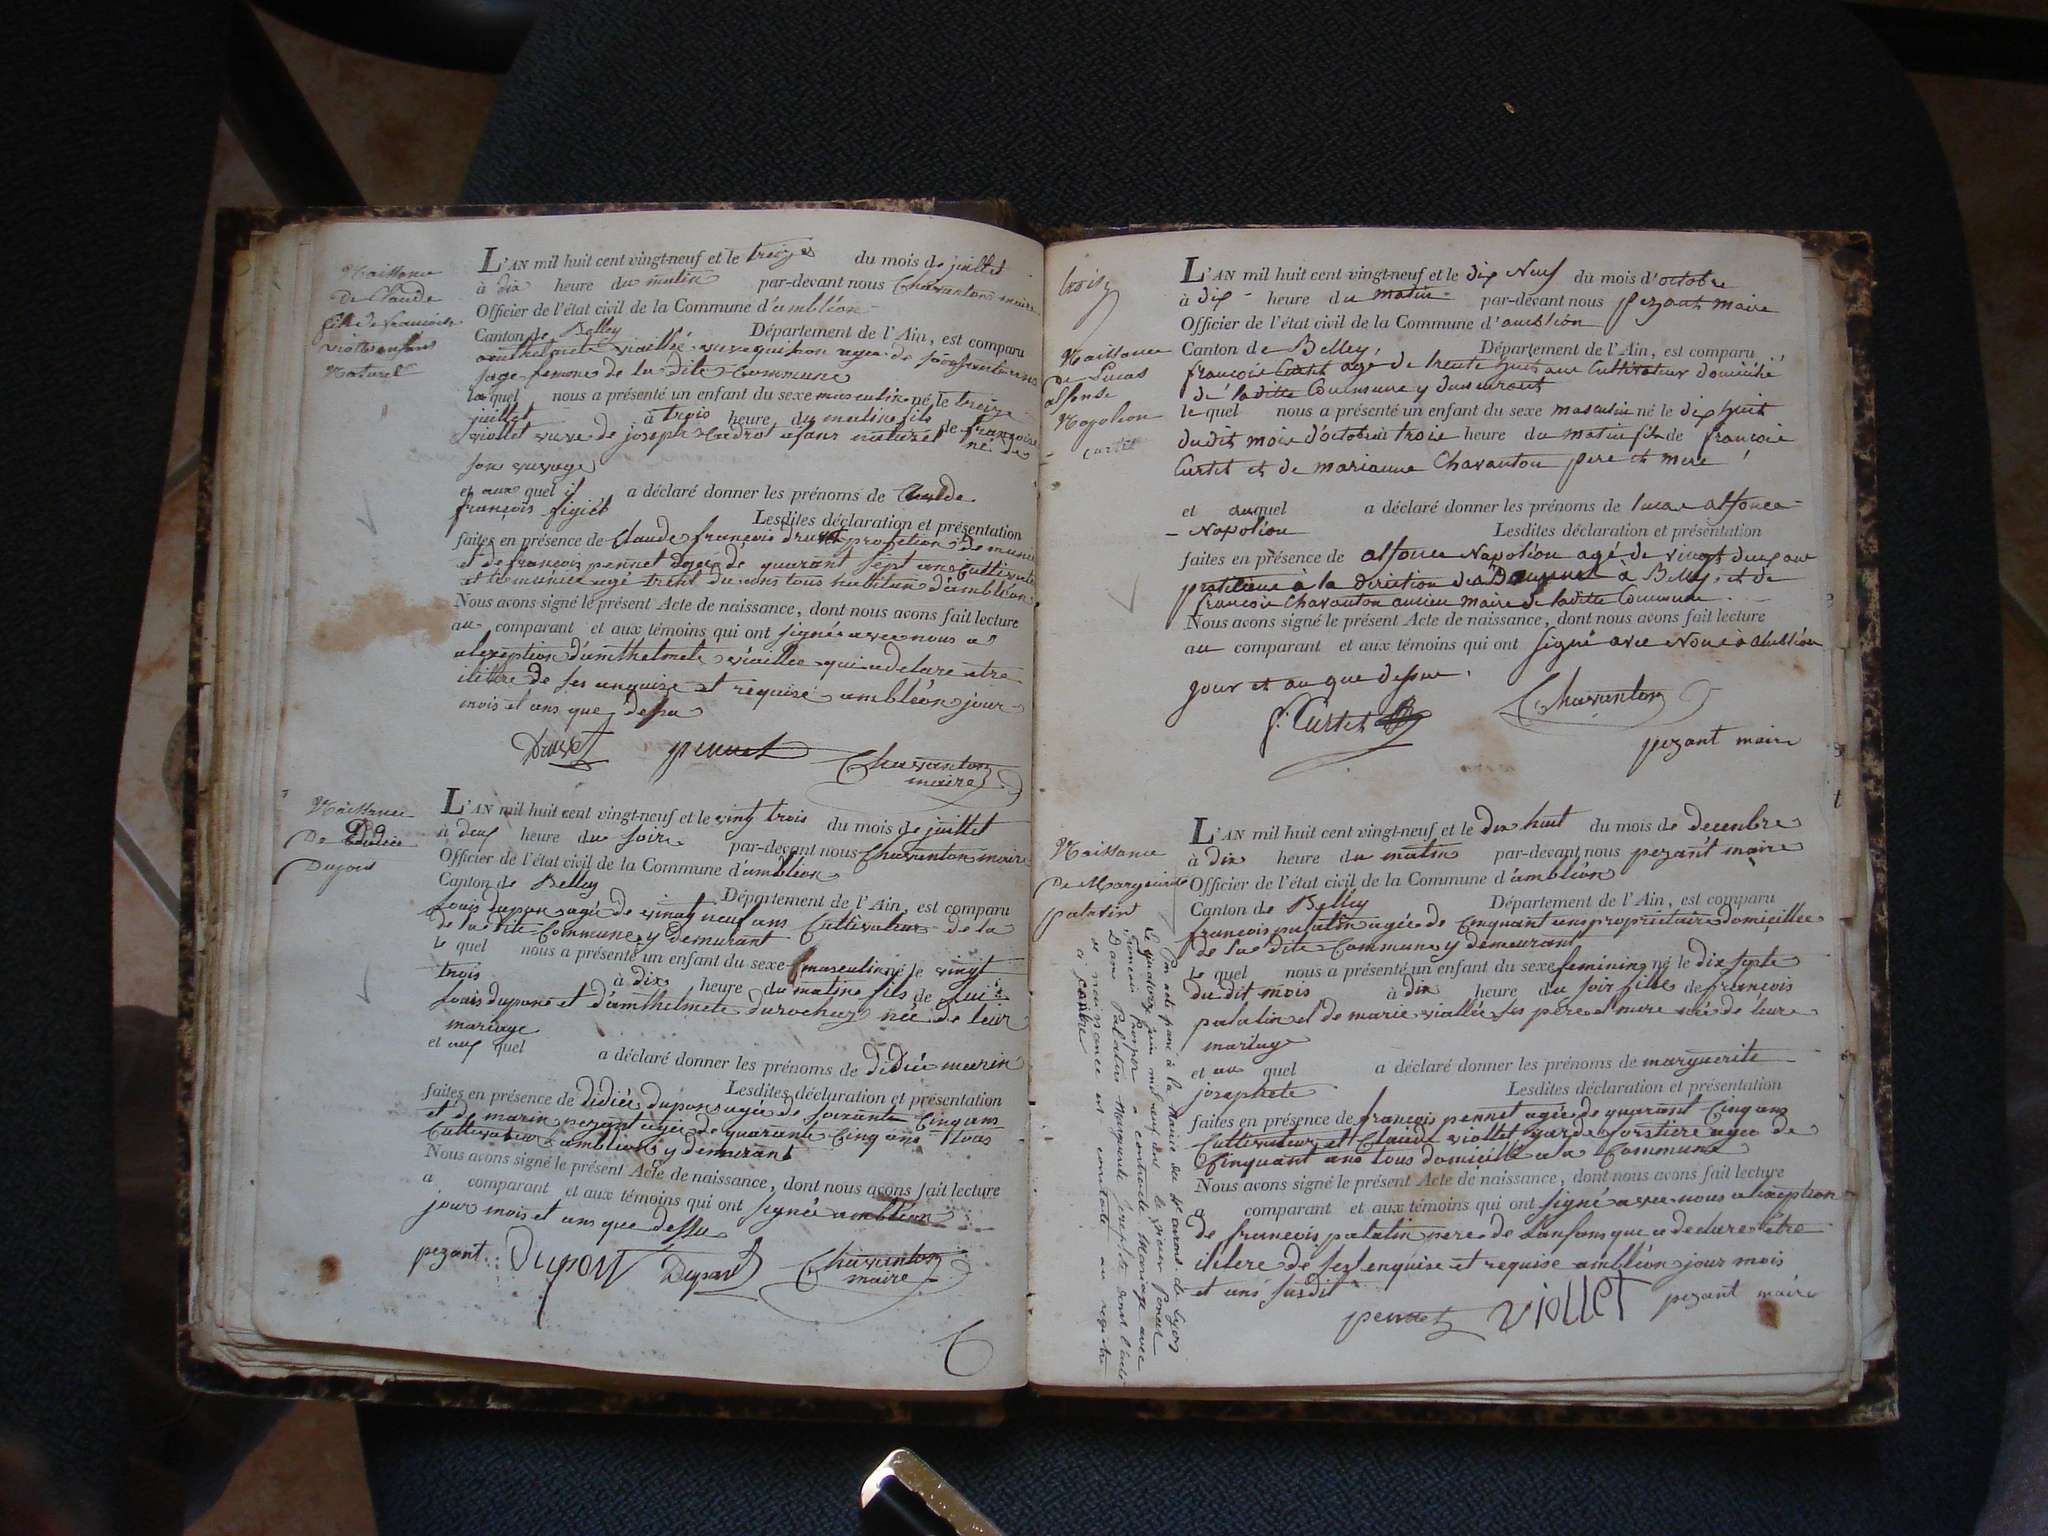 Naissance
de Claude
fils de françoise
viollet enfans
Naturel
L'AN mil huit cent vingt-neuf et le treize du mois de juillet
à dix heure du matin par-devant nous Chavanton maire
Officier de l'état civil de la Commune d'ambléon
Canton de Belley Département de l'Ain, est comparu
anthelmete viallée veuve agée de
sage femme de la dite Commune
la quel nous a présenté un enfant du sexe masculin né le treize
juillet à trois heure du matin fils de françoise
viollet veuve de joseph enfans naturel né de
son
et auquel il a déclaré donner les prénoms de Claude
françois Lesdites déclaration et présentation
faites en présence de Claude françois
et de françois pennet agée de quarant sept ans Cultivateur
tous habitans d'ambléon
Nous avons signé le présent Acte de naissance, dont nous avons fait lecture
au comparant et aux témoins qui ont signés avec nous a
alexeption d'amthelmete viallee qui a declare etre
ilitere de ses enquise et requise ambléon jour
mois et ans que dessu
pennet
Chavanton
maire
Naissance
De Didiée
Dupont
L'AN mil huit cent vingt-neuf et le vingt trois du mois de juillet
à deux heure du soire par-devant nous Chavanton maire
Officier de l'état civil de la Commune d'ambléon
Canton de Belley Département de l'Ain, est comparu
Louis dupon agée de vingt neuf ans Cultivateur de la
de la dite Commune y demurant
le quel nous a présenté un enfant du sexe masculin né le vingt
trois à dix heure du matin fils de Lui
Louis dupont et d'amthelmete durochez née de leur
mariage
et auquel a déclaré donner les prénoms de didiée marin
Lesdites déclaration et présentation
faites en présence de didiée dupon agée de soixante Cinq ans
et de marin pezant agée de quarante Cinq ans tous
Cultivateur ambléon y demurant
Nous avons signé le présent Acte de naissance, dont nous avons fait lecture
a comparant et aux témoins qui ont signée ambléon
jour mois et ans que dessu
pezant Dupont Dupont Chavanton
maire
Naissance
de Lucas
alfonse
Napoléon
Curtet
L'AN mil huit cent vingt-neuf et le dix Neuf du mois d'octobre
à dix heure du matin par-devant nous pezant maire
Officier de l'état civil de la Commune d'ambléon
Canton de Belley, Département de l'Ain, est comparu
françois Curtet agé de trente huit ans Cultivateur domicilié
de laditte Commune y demeurant
le quel nous a présenté un enfant du sexe masculin né le dix huit
dudit mois d'octobre à trois heure du matin fils de françois
Curtet et de marianne Chavanton pere et mere
et auquel a déclaré donner les prénoms de lucas alfonce
Napoléon Lesdites déclaration et présentation
faites en présence de alfonce Napoléon agé de vingt deux ans
praticien à la direction des à Belley, et de
françois Chavanton ancien maire de laditte Commune
Nous avons signé le présent Acte de naissance, dont nous avons fait lecture
au comparant et aux témoins qui ont signé avec Nous à ambléon
jour et an que dessus.
f. Curtet Chavanton
pezant maire
Naissance
De Marguerite
palatin
L'AN mil huit cent vingt-neuf et le dix huit du mois de decenbre
à dix heure du matin par-devant nous pezant maire
Officier de l'état civil de la Commune d'ambléon
Canton de Belley Département de l'Ain, est comparu
francois palatin agée de Cinquant ans propriétaire domicillée
de la dite Commune y demeurant
le quel nous a présenté un enfant du sexe feminin né le dix septe
du dit mois à dix heure du soir fille de françois
palatin et de marie viallée ses père et mere née de leure
mariage
et au quel a déclaré donner les prénoms de marguerite
josephete Lesdites déclaration et présentation
faites en présence de françois pennet agée de quarant Cinq ans
Cultivateur et Claude viollet garde forstiere agée de
Cinquant ans tous domicillé a la Commune
Nous avons signé le présent Acte de naissance, dont nous avons fait lecture
a comparant et aux témoins qui ont signé avec nous alixeption
de francois palatin pere de l'anfans que a declare etre
ilitere de ses enquise et requise ambléon jour mois
et ans susdit
pennet VIOLLET pezant maire
Par acte passé à la Mairie du arrond. de Lyon
le quatorze juin mil neuf le sieur Poncet
François Prosper a contracté Mariage avec
Dame Palatin Marguerite Josephte dont l'acte
de naissance est constaté au registre
ci contre